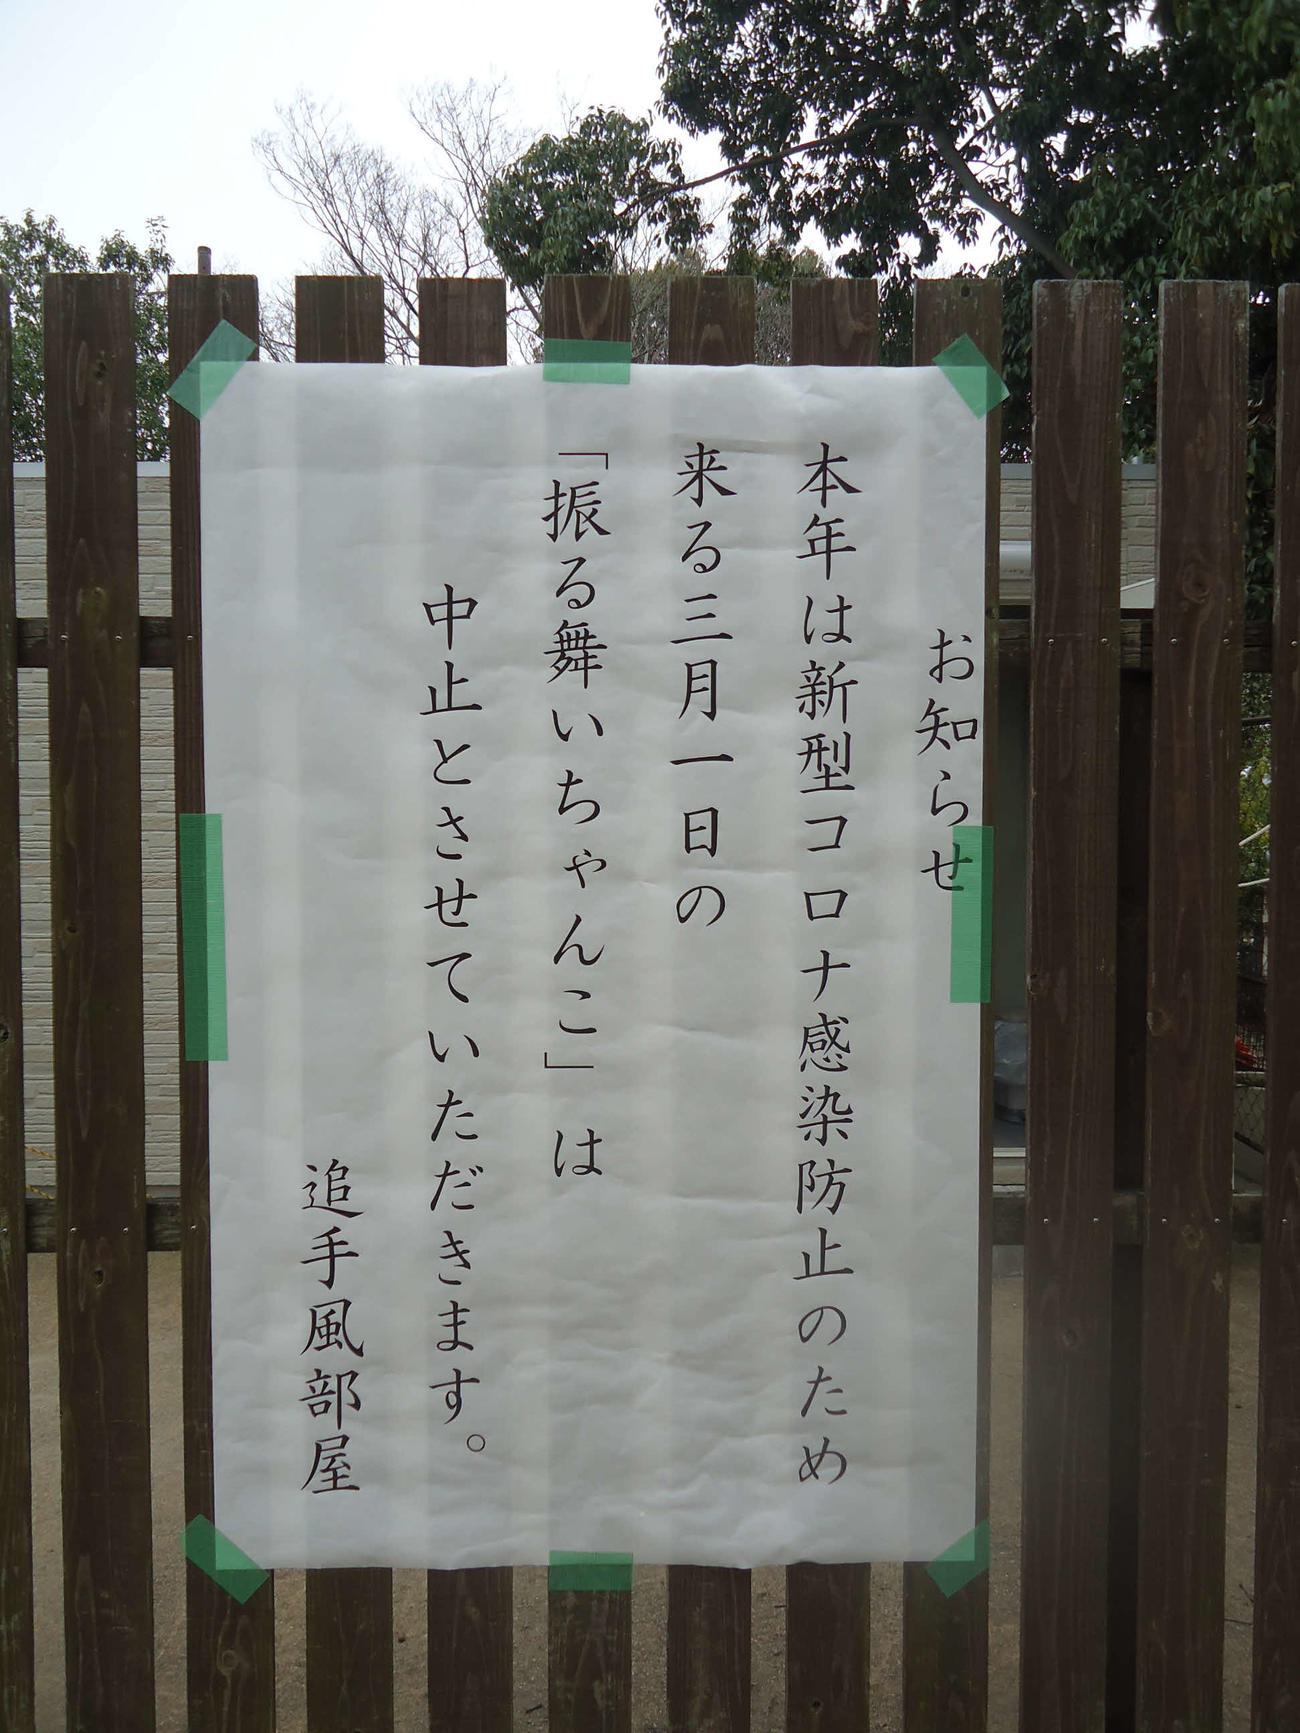 お知らせ
本年は新型コロナ感染防止のため
来る三月一日の
「振る舞いちゃんこ」は
中止とさせていただきます。
追手風部屋